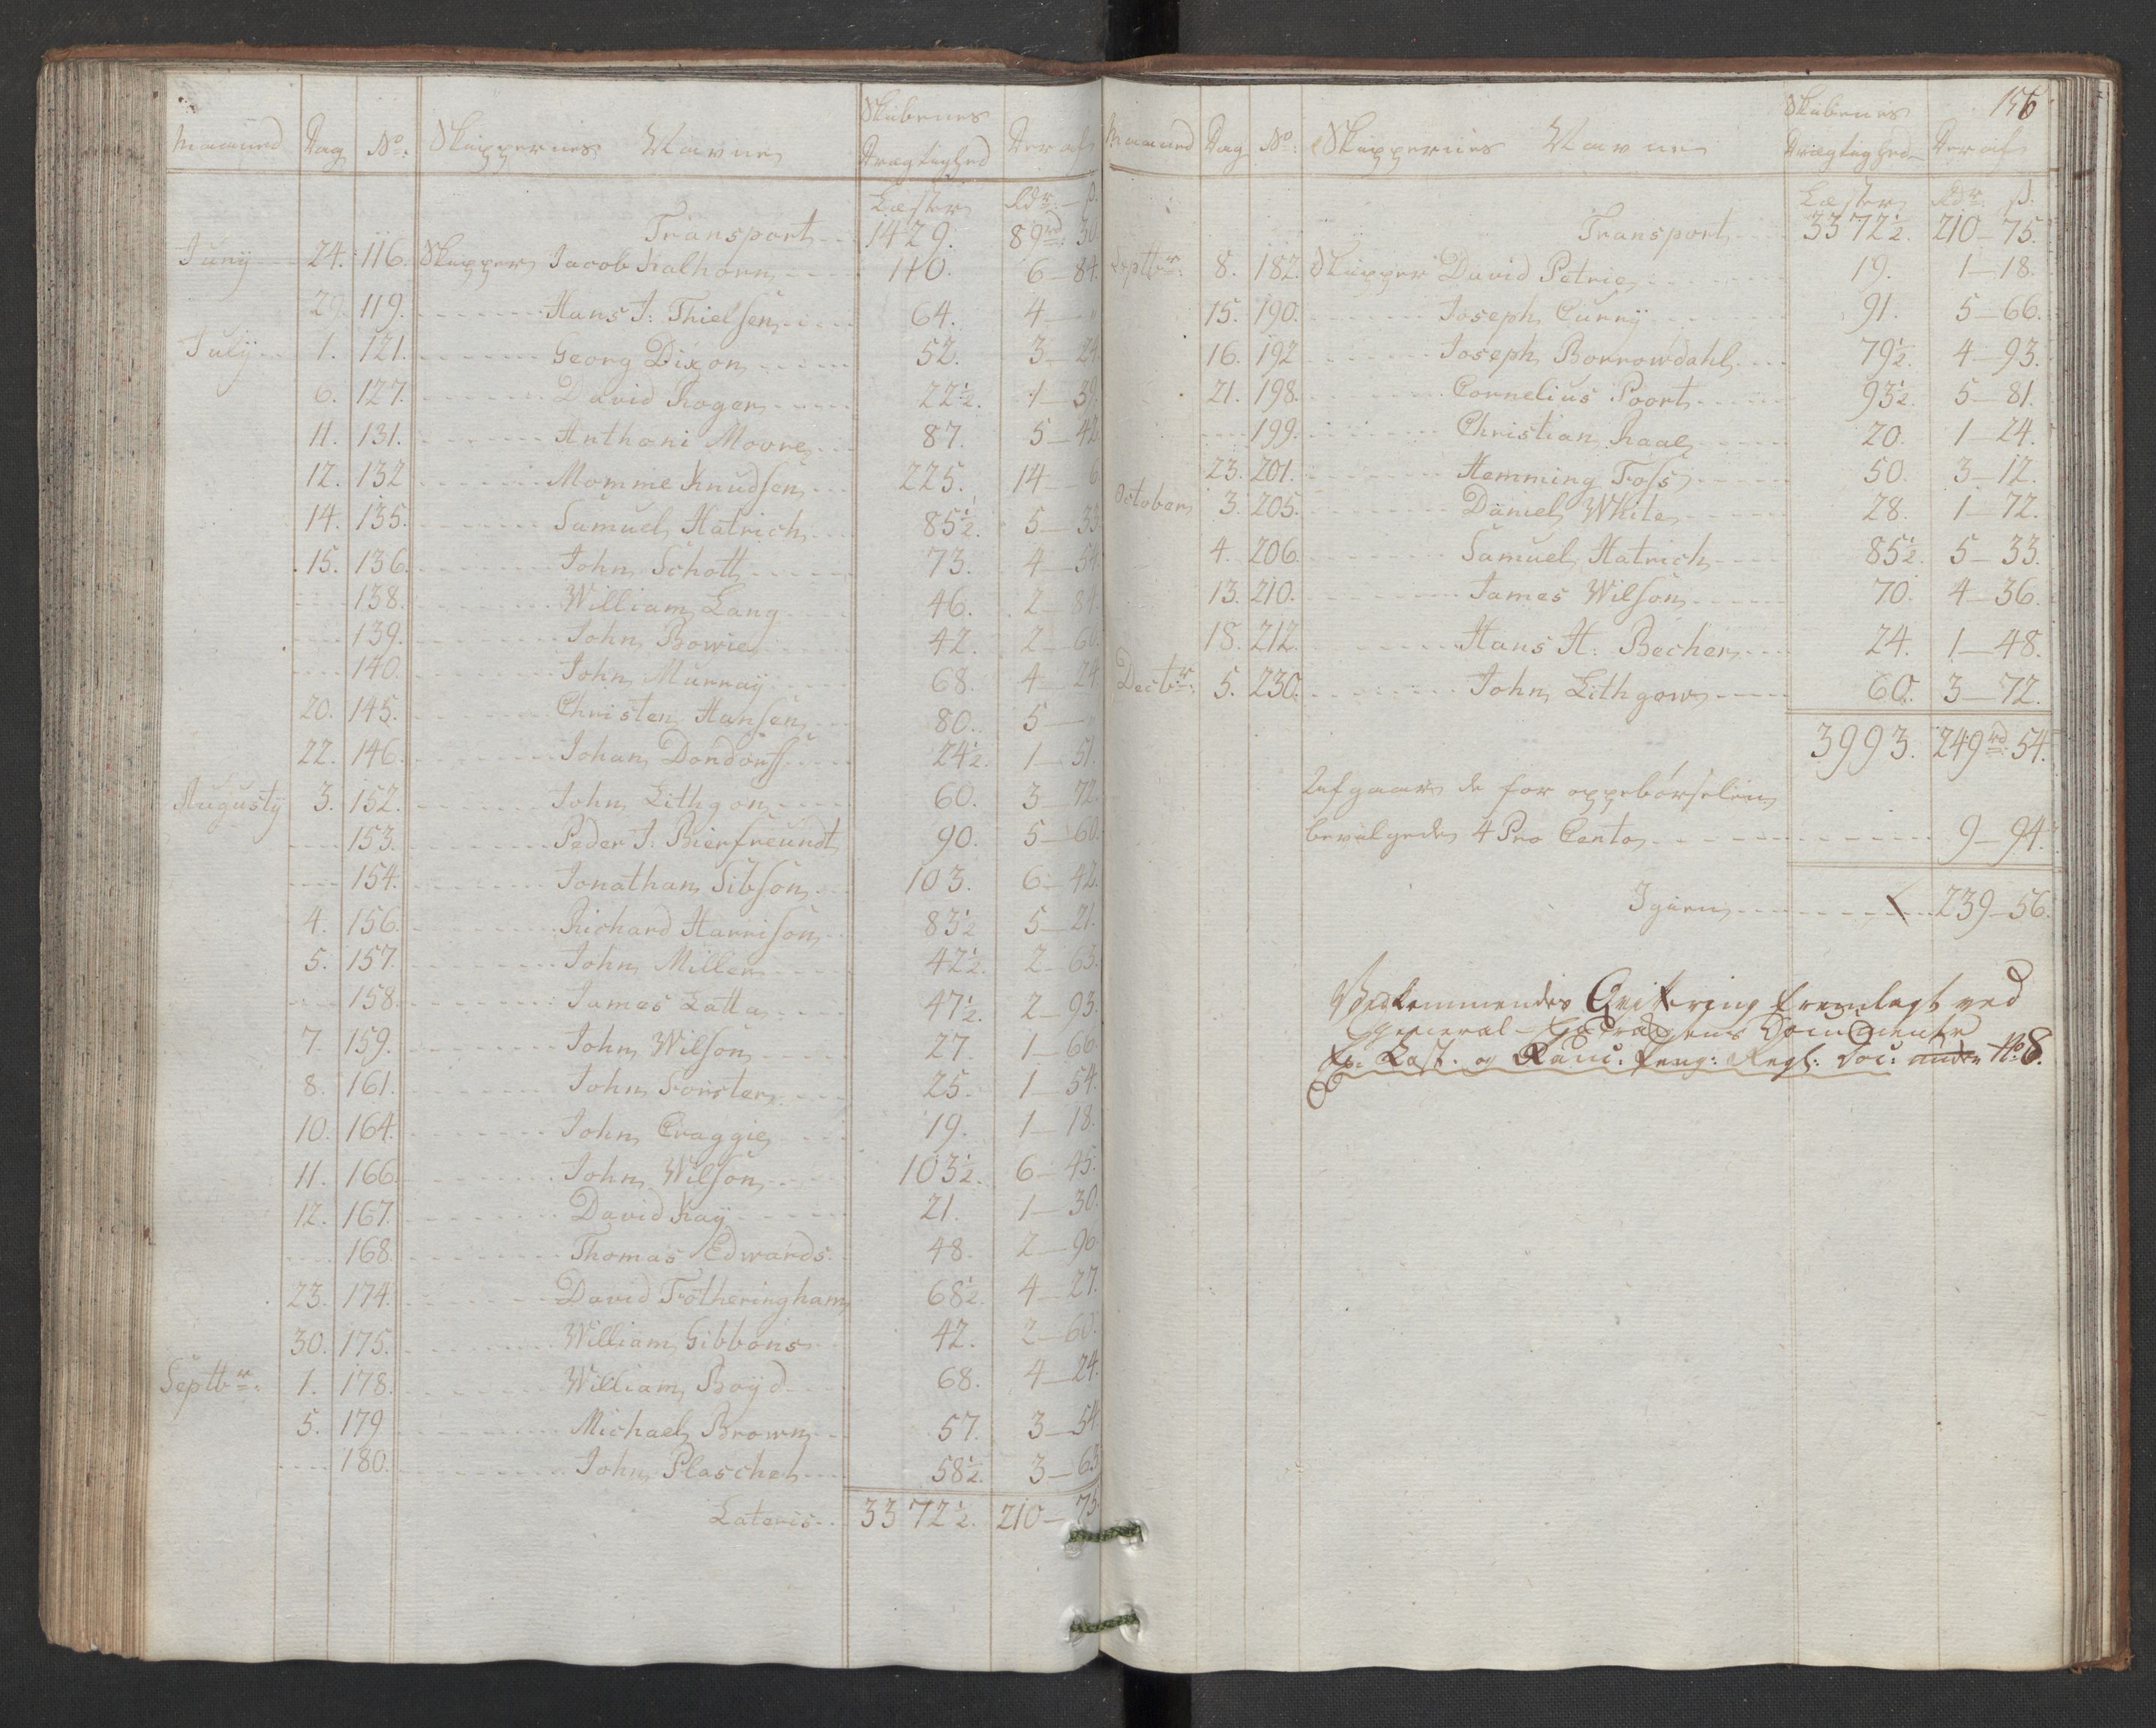 Skibenes
Maaned Dag No: Skippernes Navne Drægtighed Deraf
Læster Rdr: – ß.
Transport 1429. 89rd: 30.
Juny 24. 116. Skipper Jacob Kalhorn 110. 6 – 84.
29. 119. Hans J: Thielsen 64. 4 –
July 1. 121. Georg Dixon 52. 3 – 24.
6. 127. David Roger 22½. 1 – 39.
11. 131. Anthoni Moore 87. 5 – 42.
12. 132 Momme Knudsen 225. 14 – 6.
14. 135. Samuel Hatrich 85½. 5 – 33.
15. 136. John Schott 73. 4 – 54.
138. William Lang 46. 2 – 84.
139. John Bowie 42. 2 – 60.
140. John Murray 68. 4 – 24.
20. 145. Christen Hansen 80. 5 –
22. 146. Johan Dondorff 24½. 1 – 51.
Augusty 3. 152. John Lithgon 60. 3 – 72.
153. Peder J: Bierfreundt 90. 5 – 60.
154. Jonathan Sibson 103. 6 – 42.
4. 156. Richard Harrison 83½ 5 – 21.
5. 157. John Miller 42½. 2 – 63.
158. James Latta 47½. 2 – 93.
7. 159. John Wilson 27. 1 – 66.
8. 161. John Forster 25. 1 – 54.
10. 164. John Craggie 19. 1 – 18.
11. 166. John Wilson 103½. 6 – 45.
12. 167. David Kay 21. 1 – 30.
168. Thomas Edwards 48. 2 – 96
23. 174. David Fotheringham 68½. 4 – 27.
30. 175. William Gibbons 42. 2 – 60.
Septbr: 1. 178. William Boyd 68. 4 – 24.
5. 179 Michael Brown 57. 3 – 54.
180. John Plaschet 58½. 3 – 63.
Lateris 3372½. 210 – 75.
156
Skibenes
Maaned Dag No: Skippernes Navne Drægtighed Deraf
Læster Rdr: ß.
Transport 3372½. 210 – 75.
Septbr: 8. 182. Skipper David Petrie 19. 1 – 18.
15. 190. Joseph Curry 91. 5 – 66.
16. 192 Joseph Borrowdahl 79½. 4 – 93.
21. 198. Cornelius Poort 93½. 5 – 81.
199. Christian Raae 20. 1 – 24.
23. 201. Hemming Foss 50. 3 – 12.
October 3. 205. Daniel White 28. 1 – 72.
4. 206. Samuel Hatrich 85½. 5 – 33.
13. 210. James Wilson 70. 4 – 36.
18. 212. Hans H: Becher 24. 1 – 48.
Decbr: 5. 230. John Lithgow 60. 3 – 72.
3993. 249rd: 54.
Afgaar de for oppebørselen
bevilgede 4 Pro Cento 9 – 94.
Igien 239 – 56.
Vedkommendes Qvitering fremlagt ved
General-Extractens Documente
Last. og Reg: Doc: under No: 8.